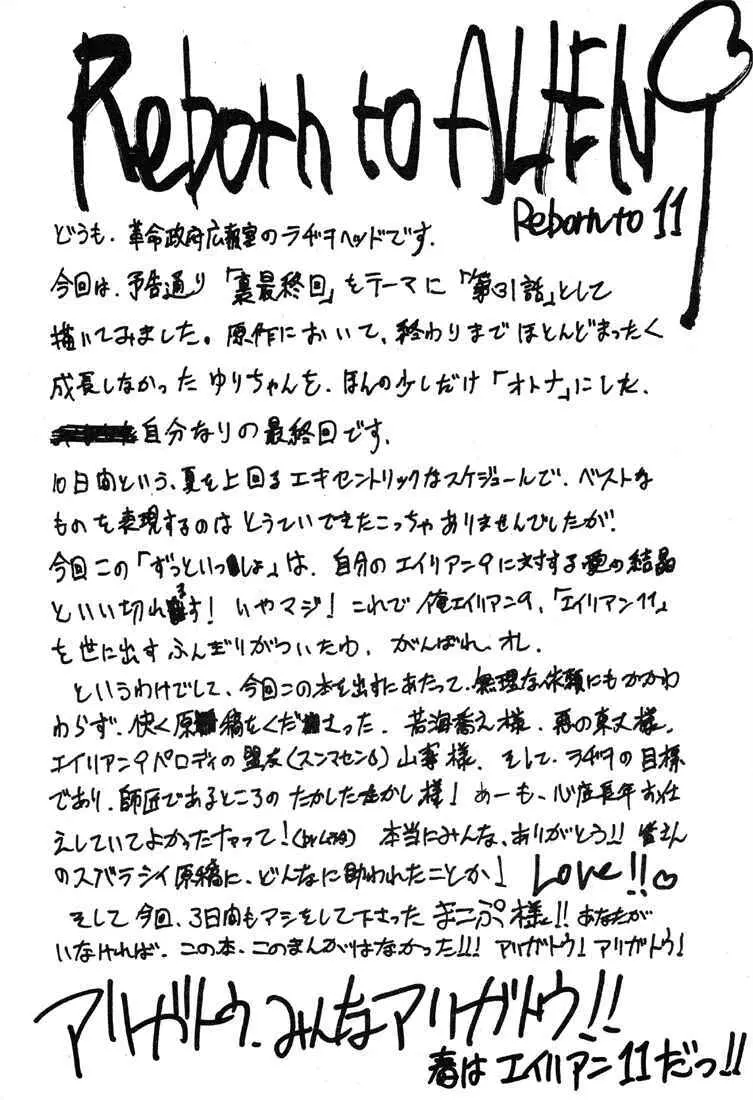 Reborn to ALIEN 9
Reborn to 11
どうも、革命政府広報室のラヂヲヘッドです。
今回は、予告通り「裏最終回」をテーマに「第31話」として
描いてみました。原作において、終わりまでほとんどまったく
成長しなかったゆりちゃんを、ほんの少しだけ「オトナ」にした、
自分なりの最終回です。
10日間という、夏を上回るエキセントリックなスケジュールで、ベストな
ものを表現するのはとうていできたこっちゃありませんでしたが、
今回この「ずっといっしょ」は、自分のエイリアン9に対する愛の結晶
といい切れます! いやマジ! これで俺エイリアン9、「エイリアン11」
を世に出すふんぎりがついたわ、がんばれ、オレ。
というわけでして、今回この本を出すにあたって、無理な依頼にもかかわ
わらず、快く原稿をくださった、若海 様、 様、
エイリアン9パロディの盟友(スンマセン) 様、そして、ラヂヲの目標
であり、師匠であるところのたかしたたかし様! あーも、心底長年お仕
えしていてよかったナァって! 本当にみんな、ありがとう!! 皆さん
のスバラシイ原稿に、どんなに助われたことか! Love!!♡
そして今回、3日間もアシをして下さったまこぷ様!! あなたが
いなければ、この本、このまんがはなかった!!! アリガトウ! アリガトウ!
アリガトウ、みんなアリガトウ!!
春はエイリアン11だっ!!